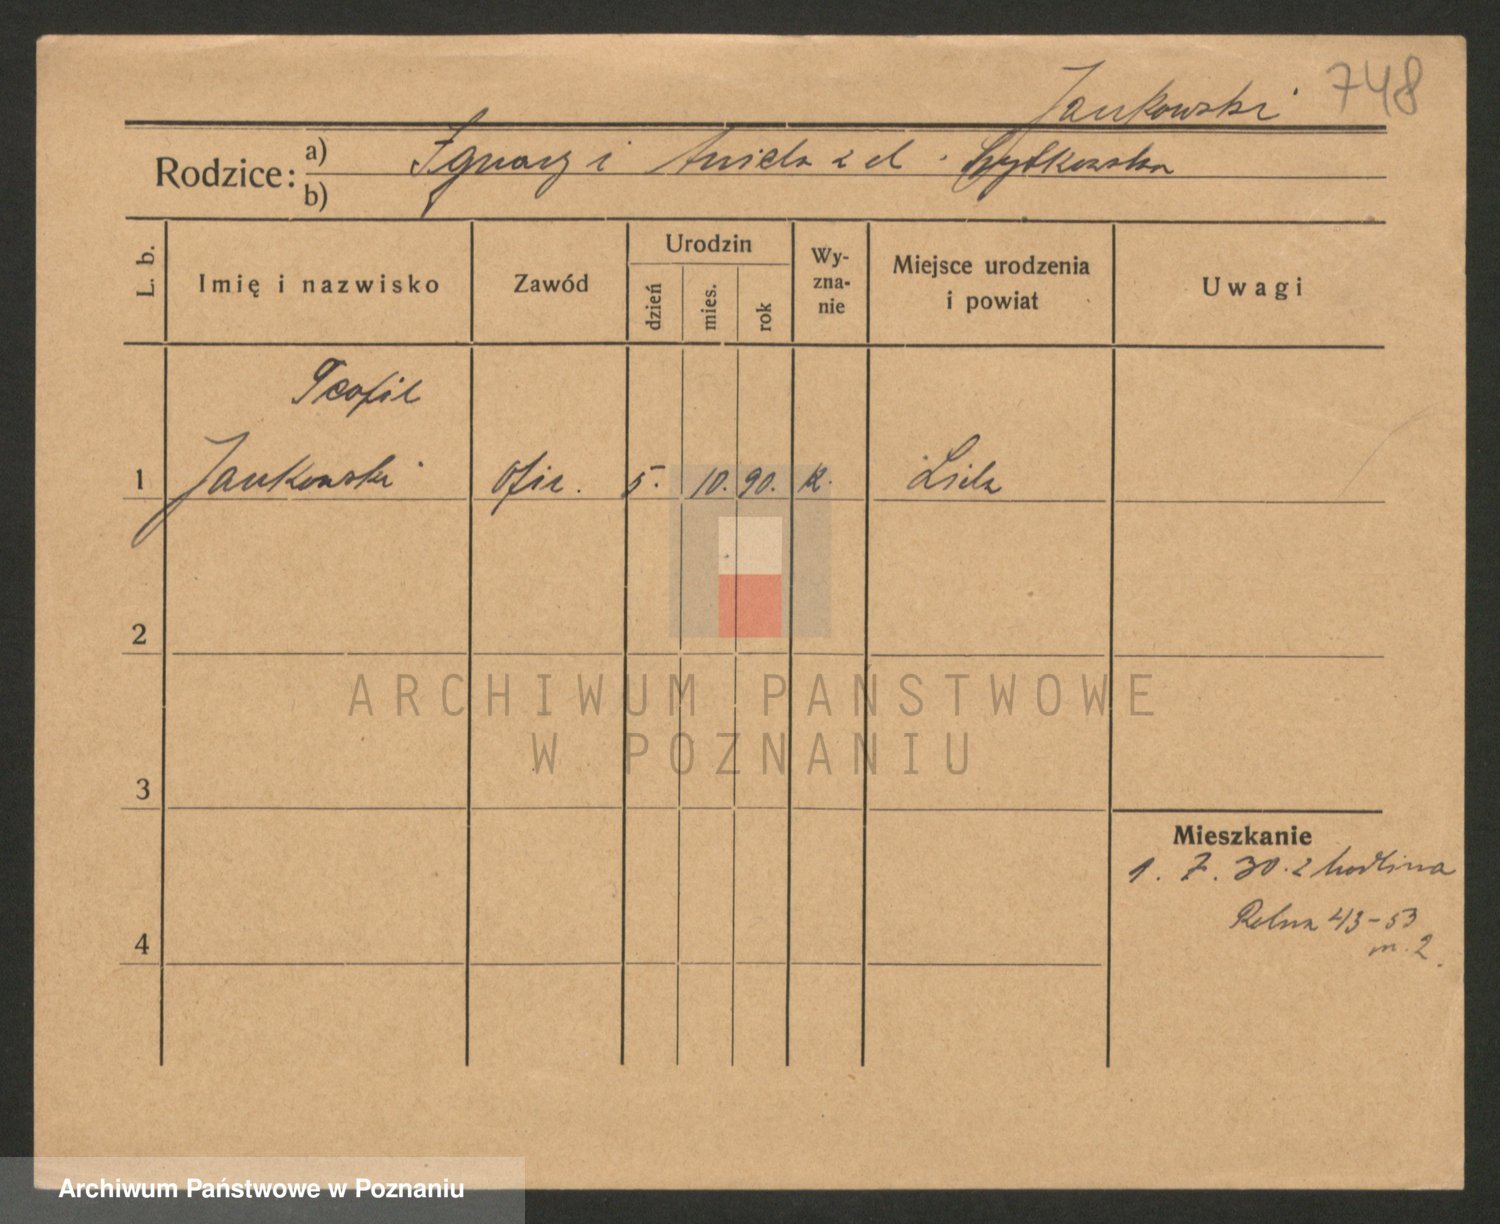 Jankowski 748
Rodzice: a) Ignacy i Aniela z d.
b)
L. b. Imię i nazwisko Zawód Urodzin dzień mies. rok Wy-zna-nie Miejsce urodzenia i powiat Uwagi
Teofil
1 Jankowski Ofic. 5. 10. 90. k.
2
ARCHIWUM PAŃSTWOWE
W POZNANIU
3
Mieszkanie
1. 7. 30. z
Rolna 43-53
4
m. 2.
Archiwum Państwowe w Poznaniu